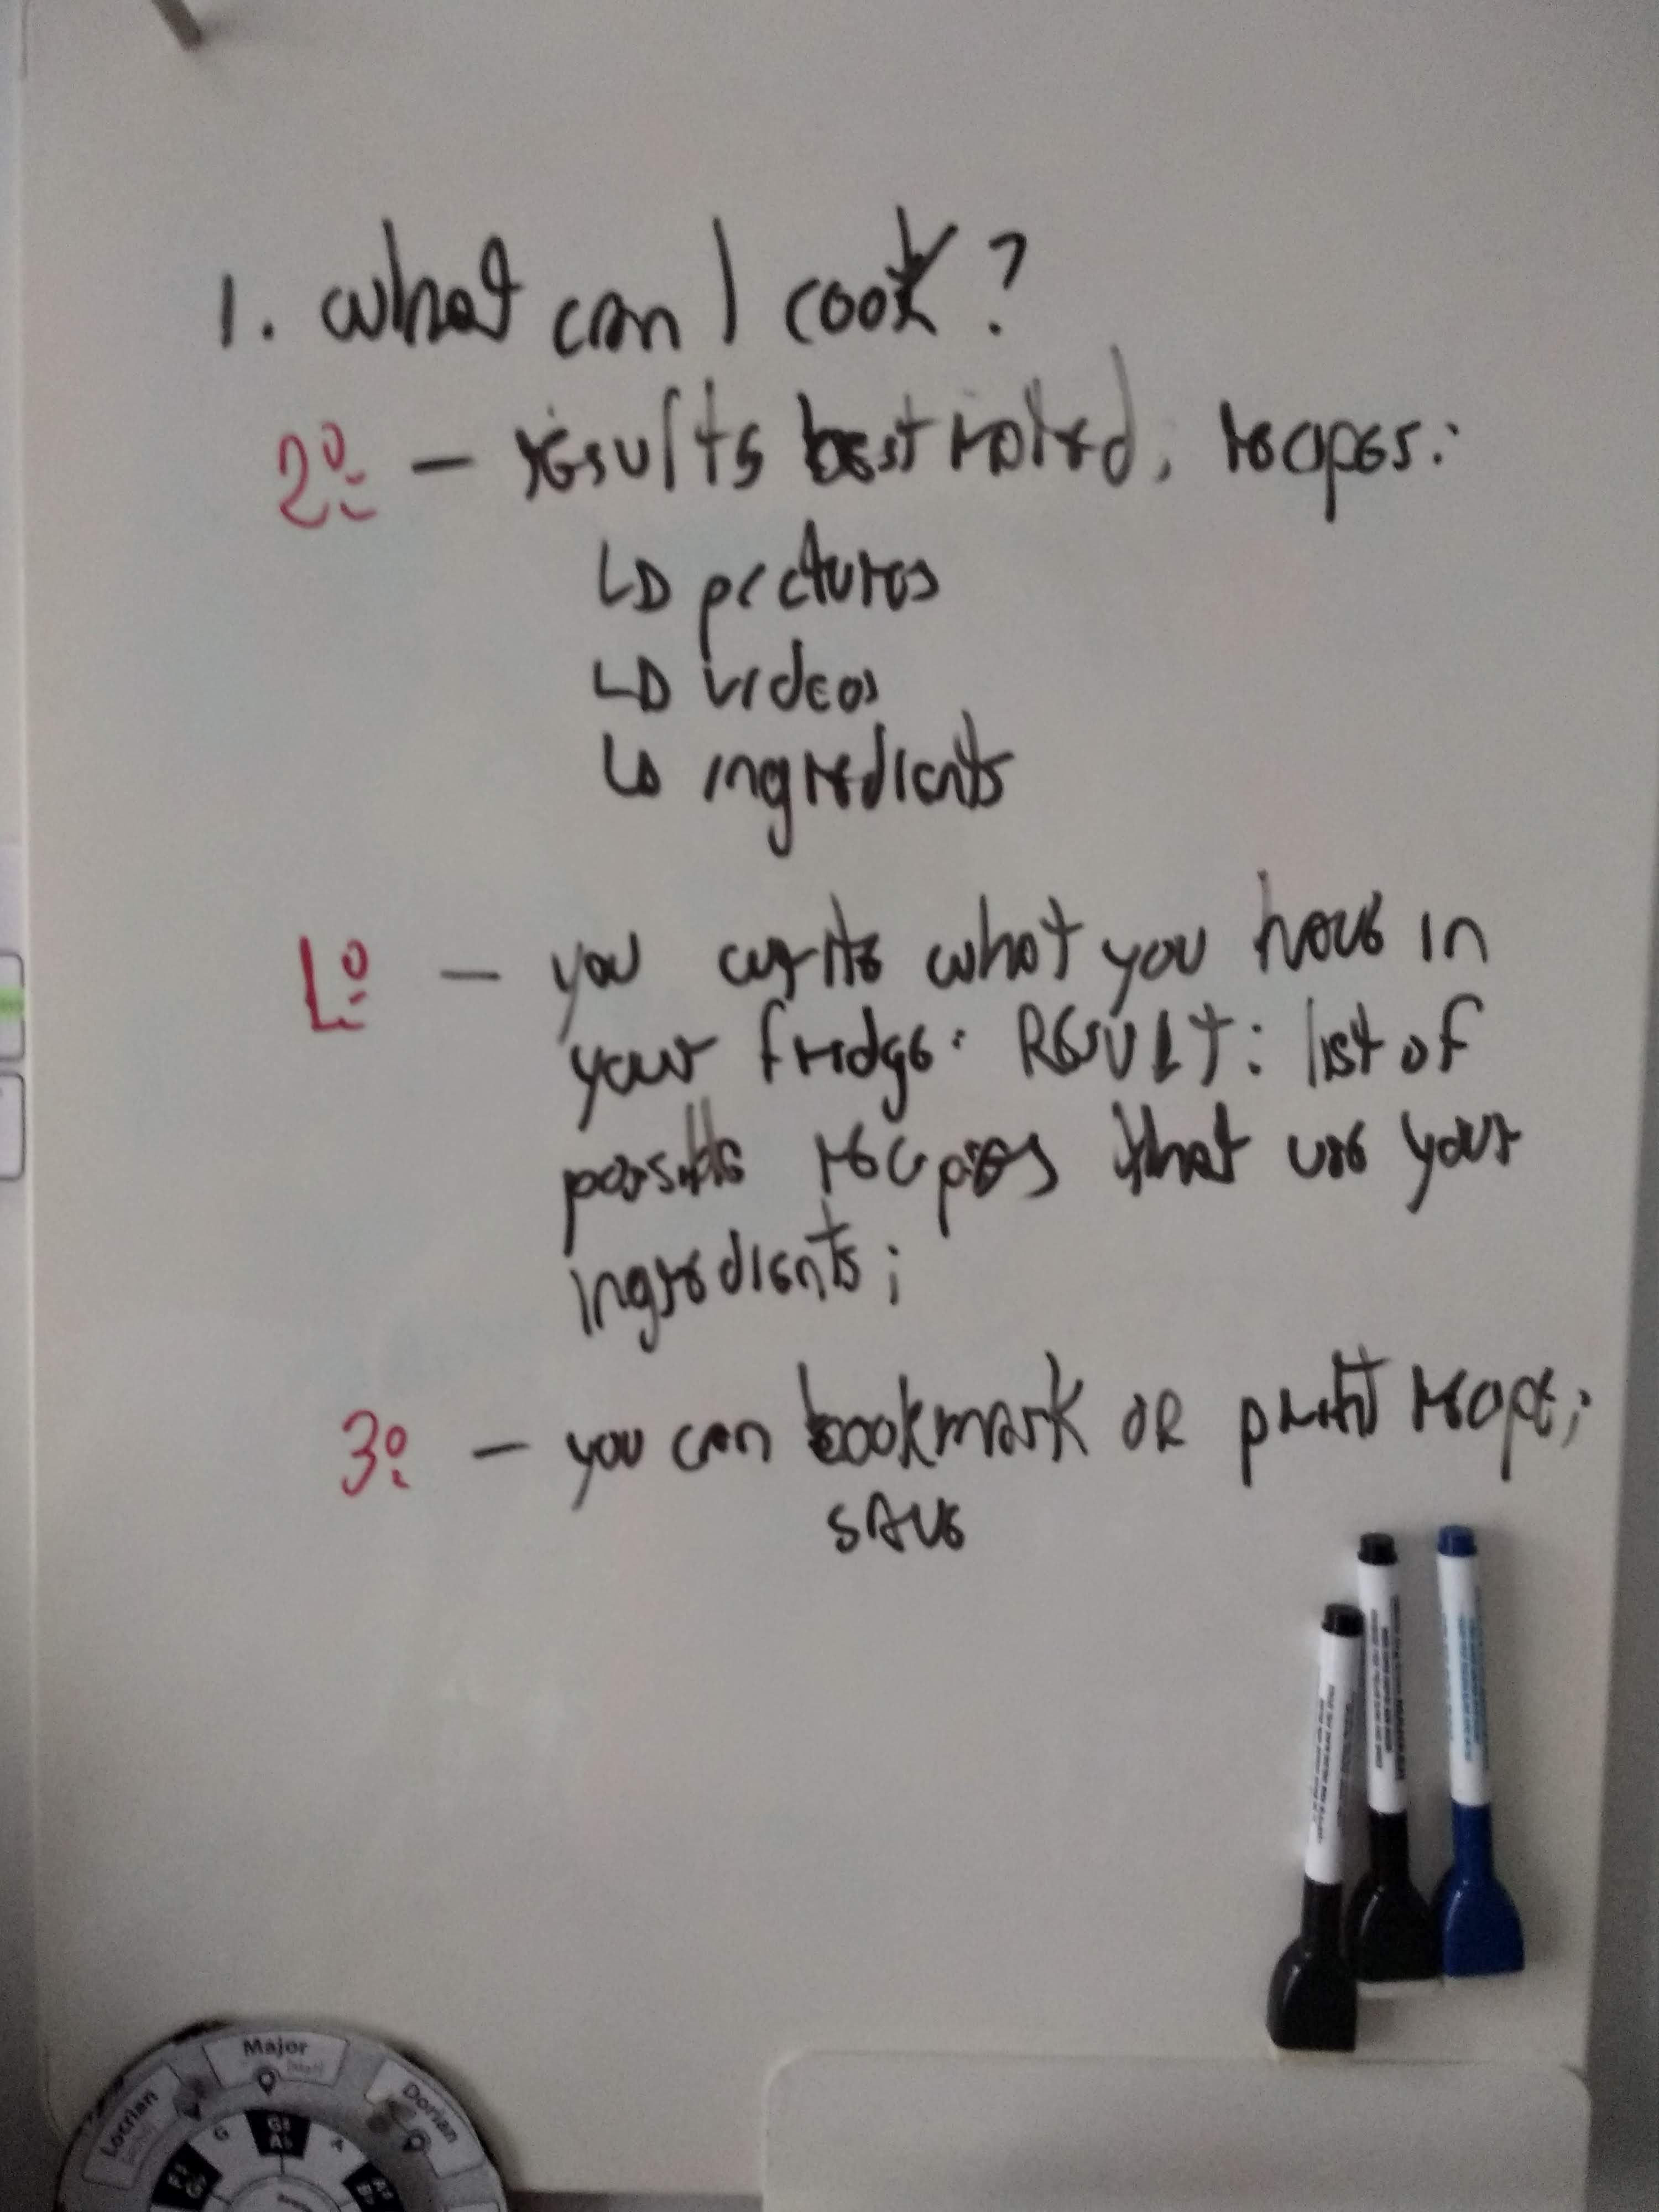 1. what can I cook?
2º - results best rated, recipes:
pictures
videos
ingredients
1º - you write what you have in
your fridge. RESULT: list of
possible recipes that use your
ingredients;
3º - you can bookmark OR print recipe;
save
Major
Dorian
Locrian
G
G#
Ab
A
F#
Gb
A#
Bb